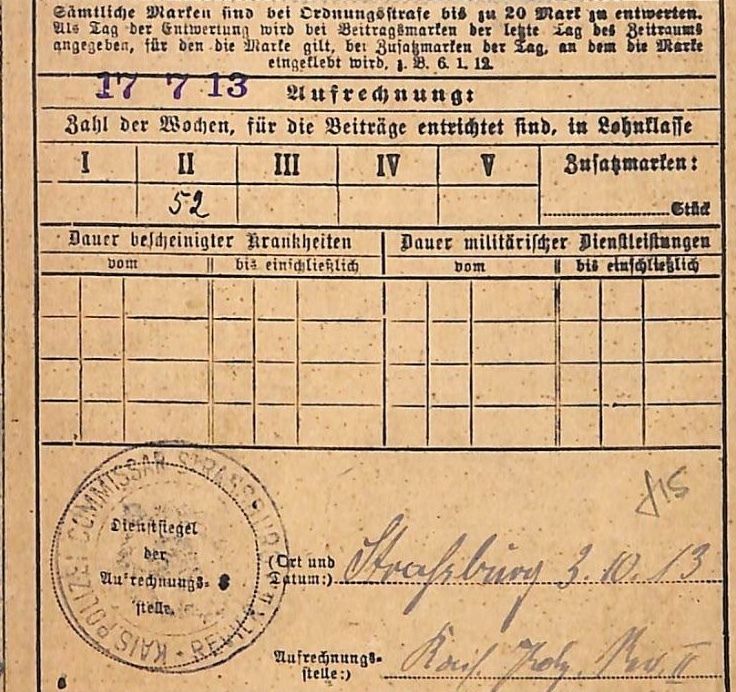 Sämtliche Marken sind bei Ordnungsstrafe bis zu 20 Mark zu entwerten.
Als Tag der Entwertung wird bei Beitragsmarken der letzte Tag des Zeitraums
angegeben, für den die Marke gilt, bei Zusatzmarken der Tag, an dem die Marke
eingeklebt wird, z. B. 6. 1. 12.
17 7 13 Aufrechnung:
Zahl der Wochen, für die Beiträge entrichtet sind, in Lohnklasse
I II III IV V Zusatzmarken:
52 Stück
Dauer bescheinigter Krankheiten Dauer militärischer Dienstleistungen
vom bis einschließlich vom bis einschließlich
KAIS. POLIZEI COMMISSAR STRASSBURG
REVIER II
Dienstsiegel
der
Aufrechnungs-
stelle.
(Ort und
Datum:) Straßburg 3. 10. 13
Aufrechnungs-
stelle:) Kais. Rev. II